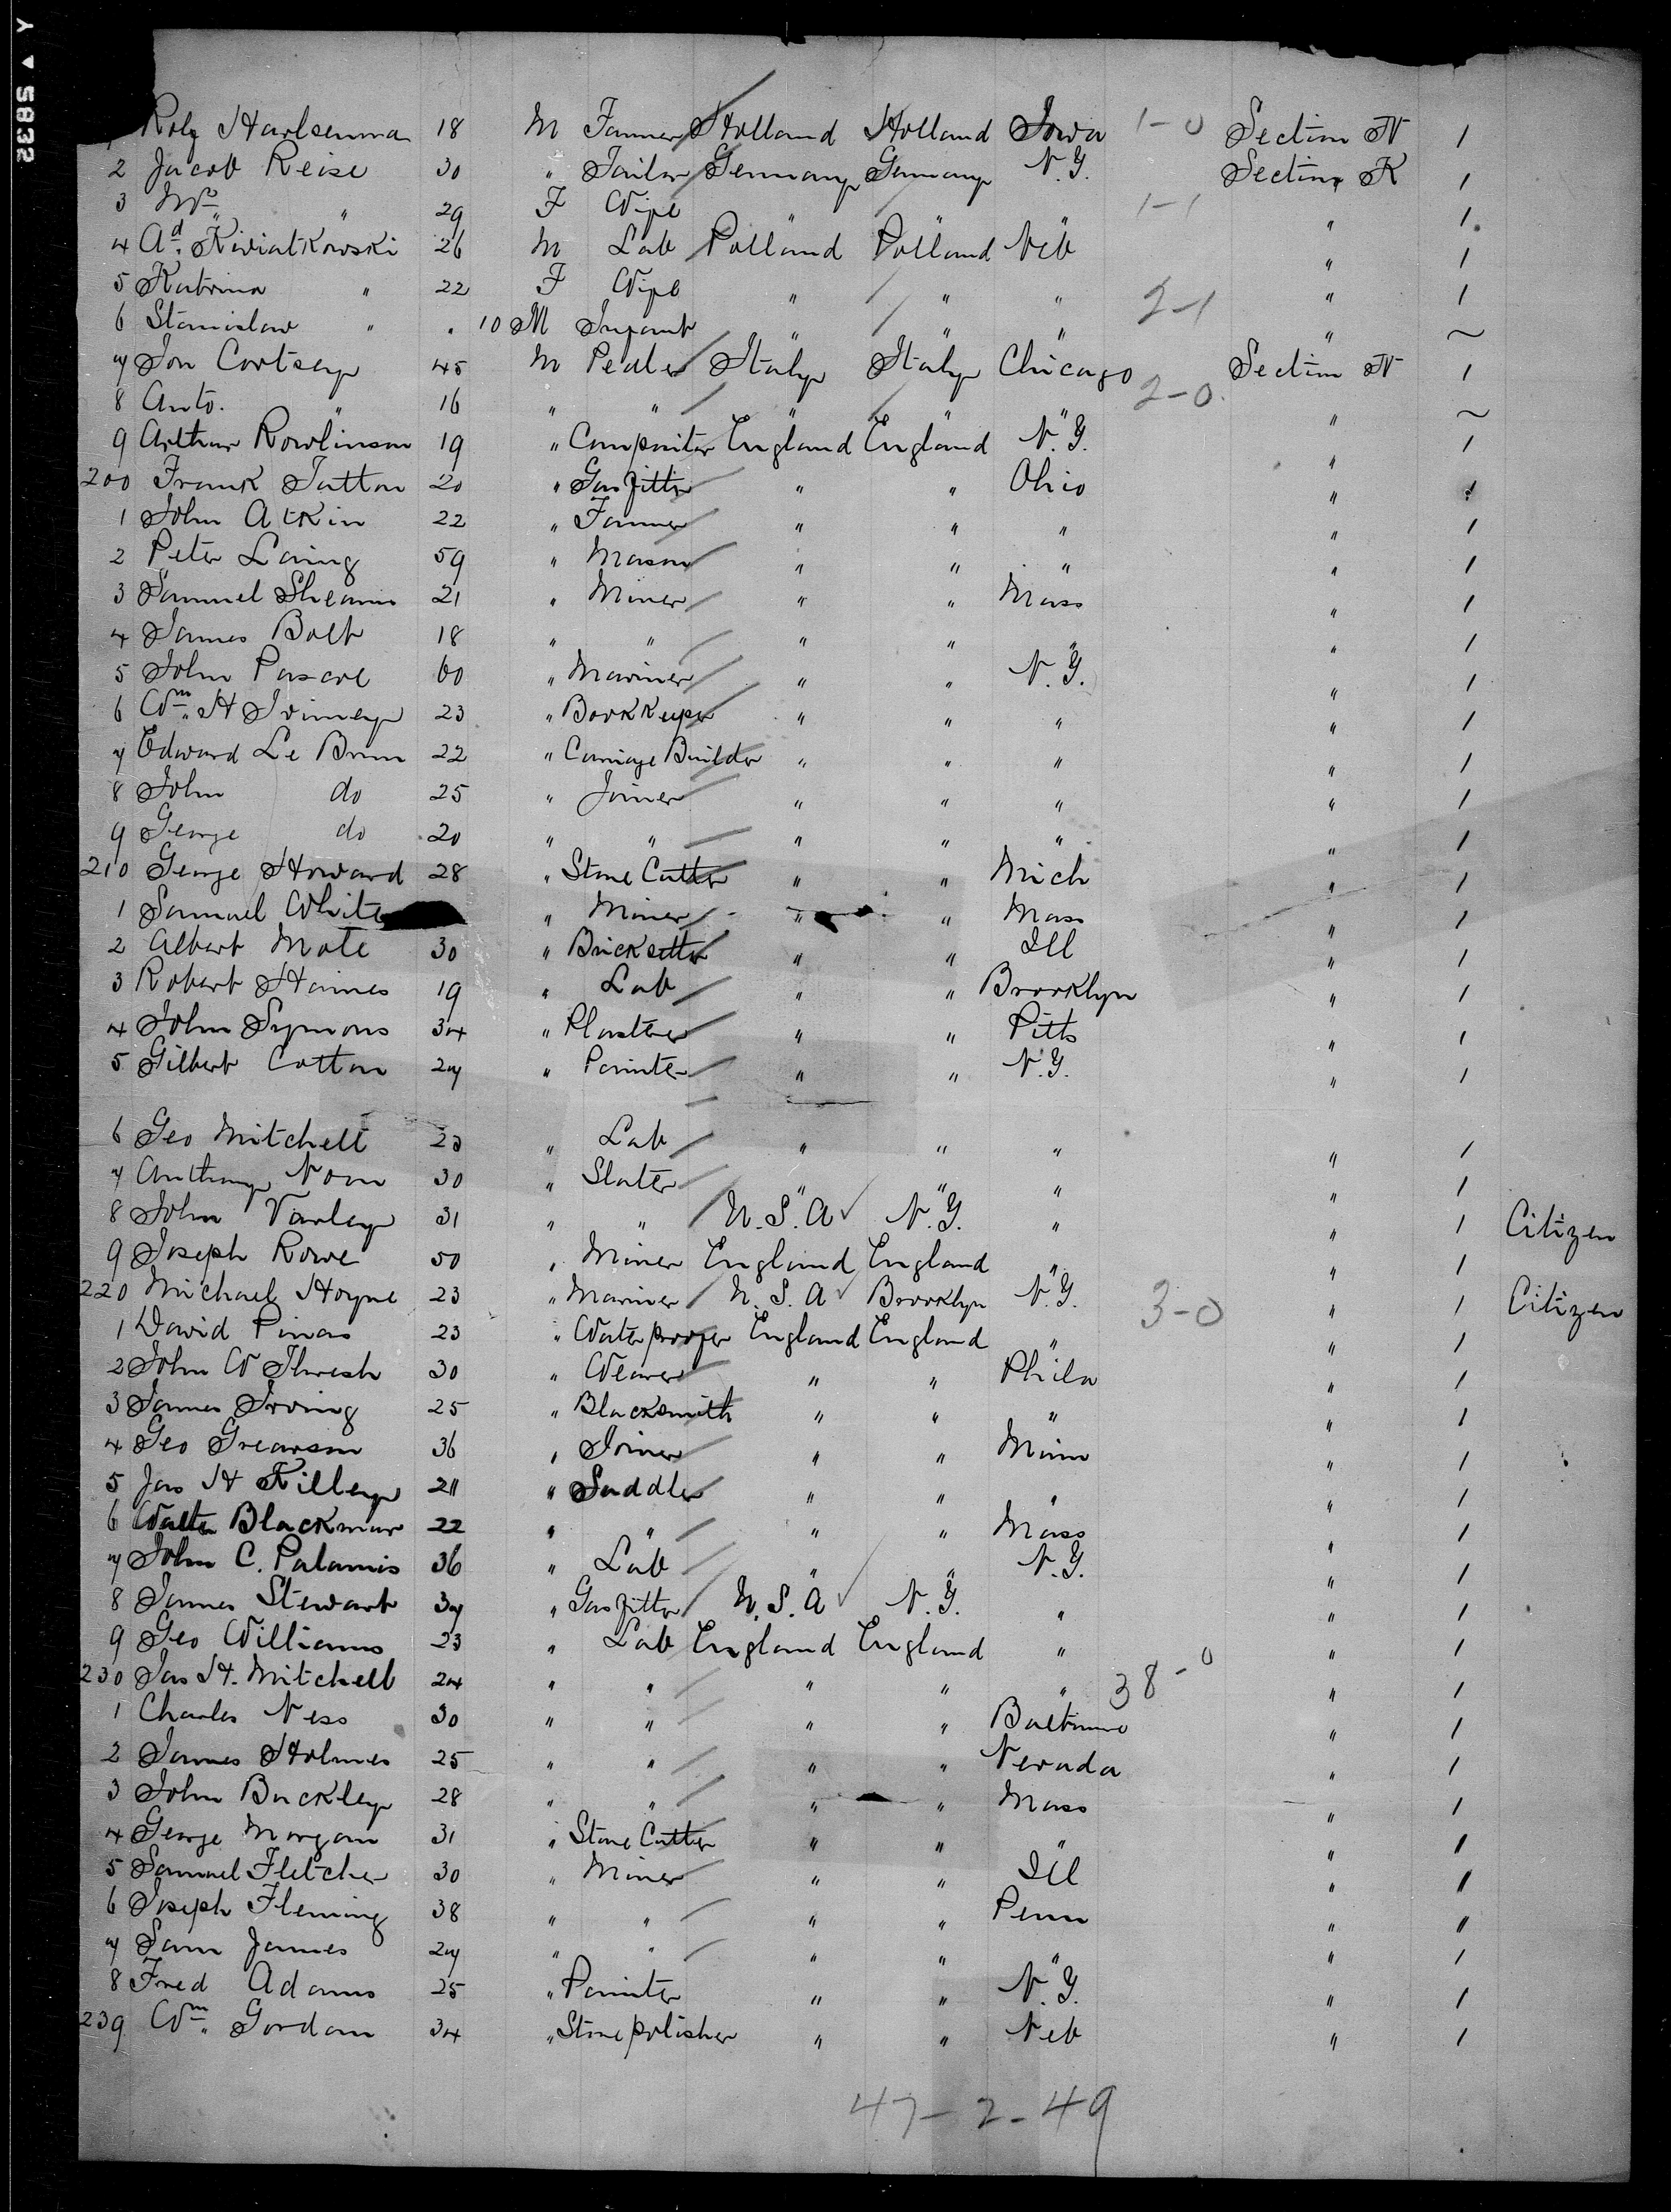 Y ▲ 5832
Roly Harlsenma 18 M Farmer Holland Holland Iowa 1-0 Section N 1
2 Jacob Reise 30 " Tailor Germany Germany N.Y. Section K 1
3 Mrs " 29 F Wife " " " 1-1 " 1
4 Ad. Kwiatkowski 26 M Lab Polland Polland Neb " 1
5 Katrina " 22 F Wife " " " 2-1 " 1
6 Stanislaw " . 10 M Infant " " " " ~
7 Jon Cortsey 45 M Pedler Italy Italy Chicago Section N 1
8 Anto. " 16 " " " " " 2-0 " ~
9 Arthur Rowlinson 19 " Compositor England England N.Y. " 1
200 Frank Tatton 20 " Gasfitter " " Ohio " 1
1 John Atkin 22 " Farmer " " " " 1
2 Peter Laing 59 " Mason " " " " 1
3 Samuel Shearin 21 " Miner " " Mass " 1
4 James Bolt 18 " " " " " " 1
5 John Pascoe 60 " Mariner " " N.Y. " 1
6 Wm. H Ivimey 23 " Bookkeeper " " " " 1
7 Edward Le Brun 22 " Carriage Builder " " " " 1
8 John do 25 " Joiner " " " " 1
9 George do 20 " " " " " " 1
210 George Howard 28 " Stone Cutter " " Mich " 1
1 Samuel White " Miner " " Mass " 1
2 Albert Mote 30 " Bricksetter " " Ill " 1
3 Robert Haines 19 " Lab " " Brooklyn " 1
4 John Symons 34 " Plasterer " " Pitts " 1
5 Gilbert Cotton 27 " Painter " " N.Y. " 1
6 Geo Mitchell 23 " Lab " " " " 1
7 Anthony Noon 30 " Slater " " " " 1
8 John Varley 31 " " U.S.A N.Y. " " 1 Citizen
9 Joseph Rowe 50 " Miner England England " " 1
220 Michael Hoyne 23 " Mariner U.S.A Brooklyn N.Y. 3-0 " 1 Citizen
1 David Pinas 23 " Waterproofer England England " " 1
2 John W Thresh 30 " Weaver " " Phila " 1
3 James Irving 25 " Blacksmith " " " " 1
4 Geo Grearson 36 " Joiner " " Minn " 1
5 Jas H Killey 21 " Saddler " " " " 1
6 Walter Blackmar 22 " " " " Mass " 1
7 John C. Palamis 36 " Lab " " N.Y. " 1
8 James Stewart 37 " Gasfitter U.S.A N.Y. " " 1
9 Geo Williams 23 " Lab England England " " 1
230 Jas H. Mitchell 24 " " " " " 38-0 " 1
1 Charles Ness 30 " " " " Baltimore " 1
2 James Holmes 25 " " " " Nevada " 1
3 John Buckley 28 " " " " Mass " 1
4 George Morgan 31 " Stone Cutter " " " " 1
5 Samuel Fletcher 30 " Miner " " Ill " 1
6 Joseph Fleming 38 " " " " Penn " 1
7 Sam James 27 " " " " " " 1
8 Fred Adams 25 " Painter " " N.Y. " 1
239 Wm. Gordon 34 " Stone polisher " " Neb " 1
47-2-49